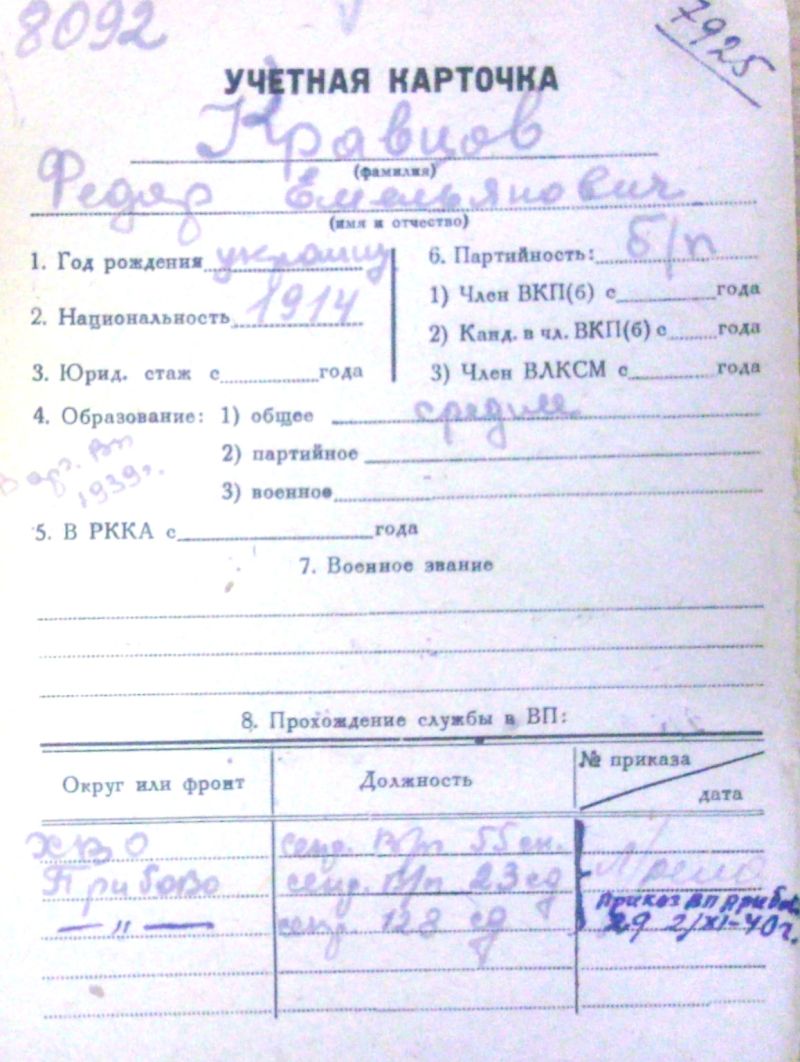 8092
7925
УЧЕТНАЯ КАРТОЧКА
Кравцов
(фамилия)
Федор Емельянович
(имя и отчество)
1. Год рождения украинц
2. Национальность 1914
3. Юрид. стаж с года
6. Партийность: б/п
1) Член ВКП(б) с года
2) Канд. в чл. ВКП(б) с года
3) Член ВЛКСМ с года
4. Образование: 1) общее средние
2) партийное
3) военное
В арг. ВП
1939г.
5. В РККА с года
7. Военное звание
8. Прохождение службы в ВП:
Округ или фронт Должность № приказа дата
ХВО секр. В/п 55 сп.
Прибово секр. В/п 23 сд
— „ — секр. 128 сд
Приказ ВП Прибов.
29 2/XI-40г.